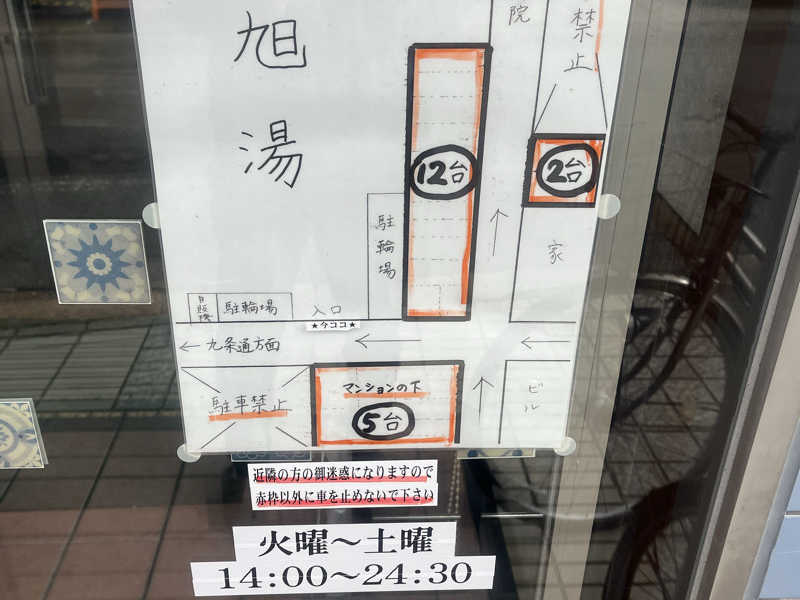 旭湯
院
禁止
12台
2台
駐輪場
家
自販機
駐輪場
入口
★今ココ★
九条通方面
駐車禁止
マンションの下
5台
ビル
近隣の方の御迷惑になりますので
赤枠以外に車を止めないで下さい
火曜〜土曜
14:00〜24:30